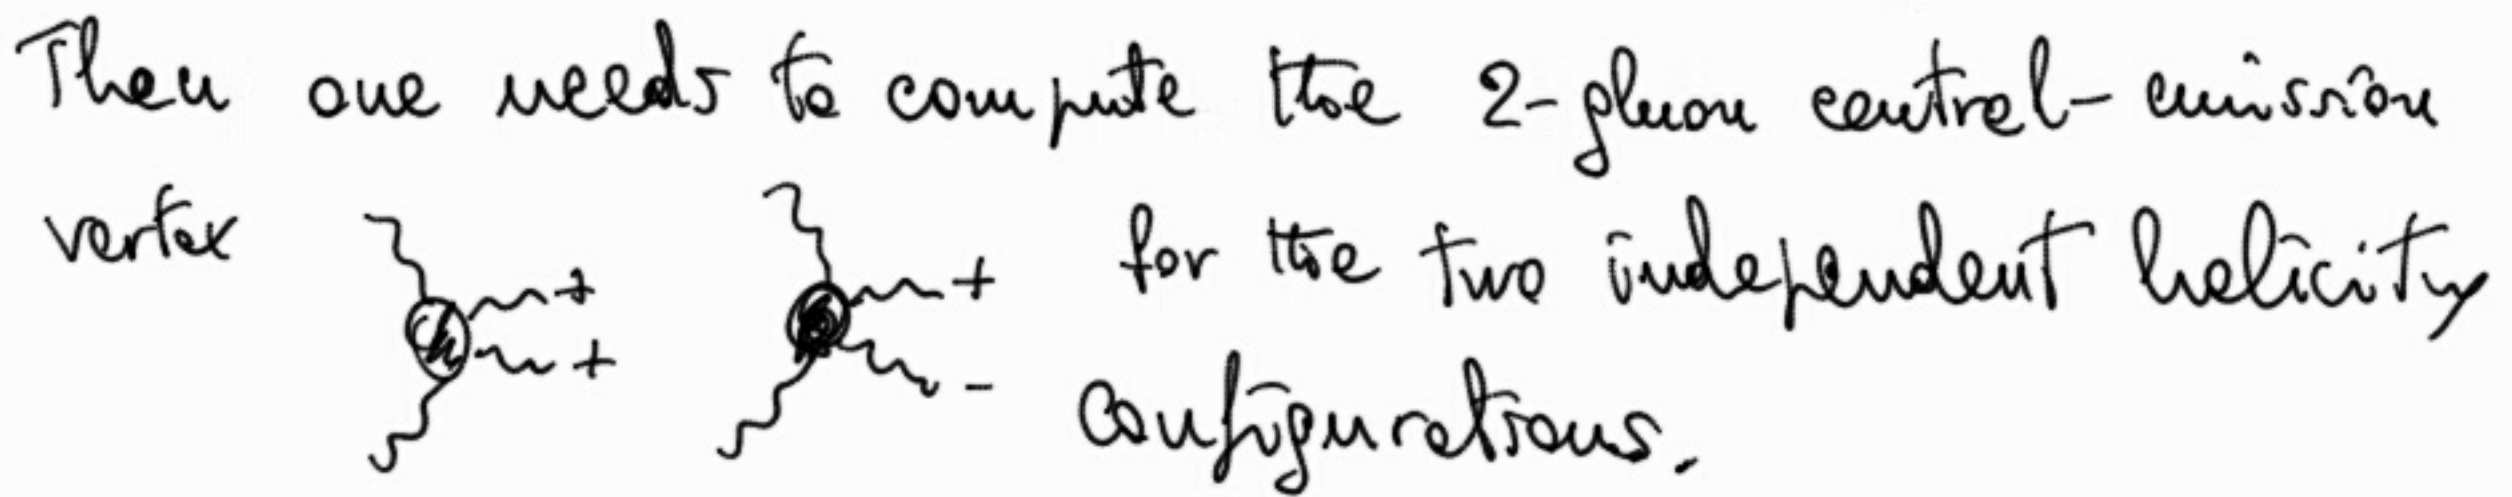 Then one needs to compute the 2-gluon central-emission
vertex + + + - for the two independent helicity
configurations.